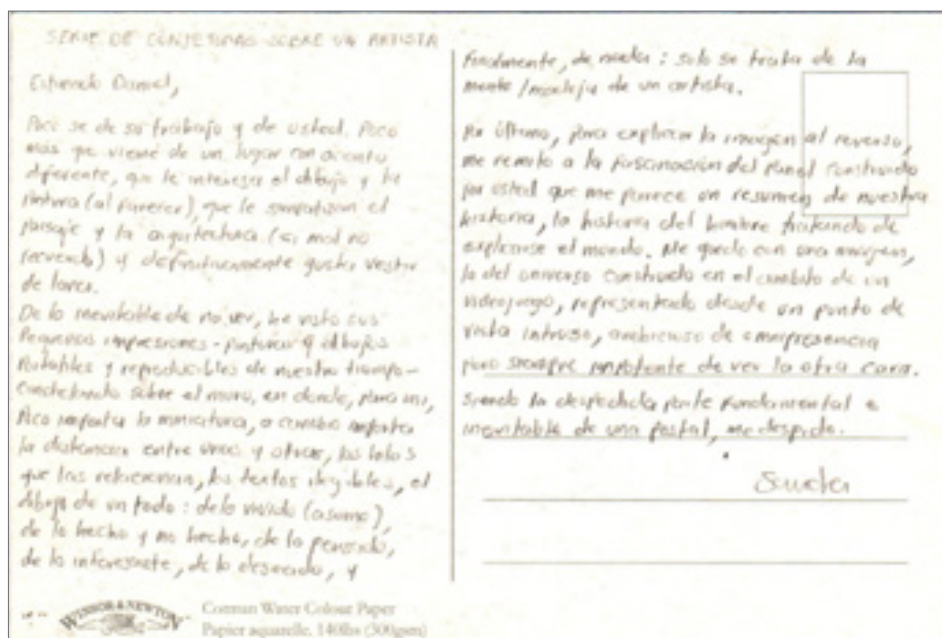 SERIE DE CONJETURAS SOBRE UN ARTISTA
Estimado Daniel,
Poco se de su trabajo y de usted. Poco
más que viene de un lugar con acento
diferente, que le interesa el dibujo y la
pintura (al parecer), que le simpatizan el
paisaje y la arquitectura (si mal no
recuerdo) y definitivamente gusta vestir
de
De lo inevitable de no ver, he visto sus
Pequeñas impresiones - pinturas y dibujos
Portables y reproducibles de nuestro tiempo -
sobre el muro, en donde, para mi,
Poco importa la miniatura, a cambio importa
la distancia entre unas y otras, los
que las referencian, los textos ilegibles, el
dibujo de un todo: de lo vivido (asumo),
de lo hecho y no hecho, de lo pensado,
de lo interesante, de lo desecado, y
finalmente, de nada: solo se trata de la
mente / de un artista.
Por último, para explicar la imagen al reverso,
me remito a la fascinación del panel construido
por usted que me parece un resumen de nuestra
historia, la historia del hombre tratando de
explicarse el mundo. Me quedo con una imagen,
la del universo construido en el ámbito de un
videojuego, representado desde un punto de
vista intruso, ambicioso de omnipresencia
pero siempre impotente de ver la otra cara.
Siendo la despedida parte fundamental e
inevitable de una postal, me despido.
WINSOR & NEWTON
Cotman Water Colour Paper
Papier aquarelle, 140lbs (300gsm)